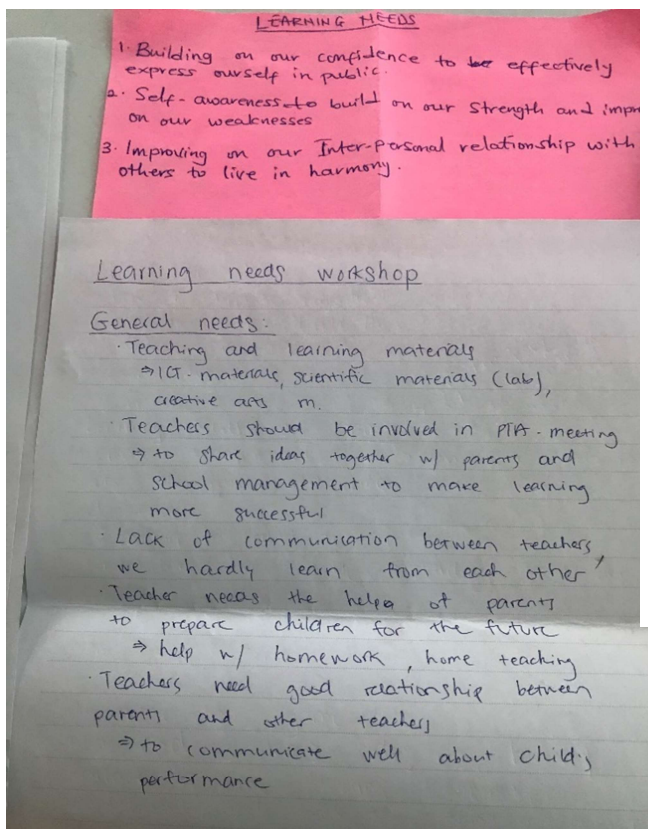 LEARNING NEEDS
1. Building on our confidence to be effectively
express ourself in public.
2. Self-awareness to build on our Strength and impr
on our weaknesses
3. Improving on our Inter-personal relationship with
others to live in harmony.
Learning needs workshop
General needs:
· Teaching and learning materials
⇒ ICT-materials, scientific materials (lab),
creative arts m.
· Teachers should be involved in PTA-meeting
⇒ to share ideas together w/ parents and
school management to make learning
more successful
· Lack of communication between teachers,
we hardly learn from each other
· Teacher needs the help of parents
to prepare children for the future
⇒ help w/ homework, home teaching
· Teachers need good relationship between
parents and other teachers
⇒ to communicate well about child's
performance